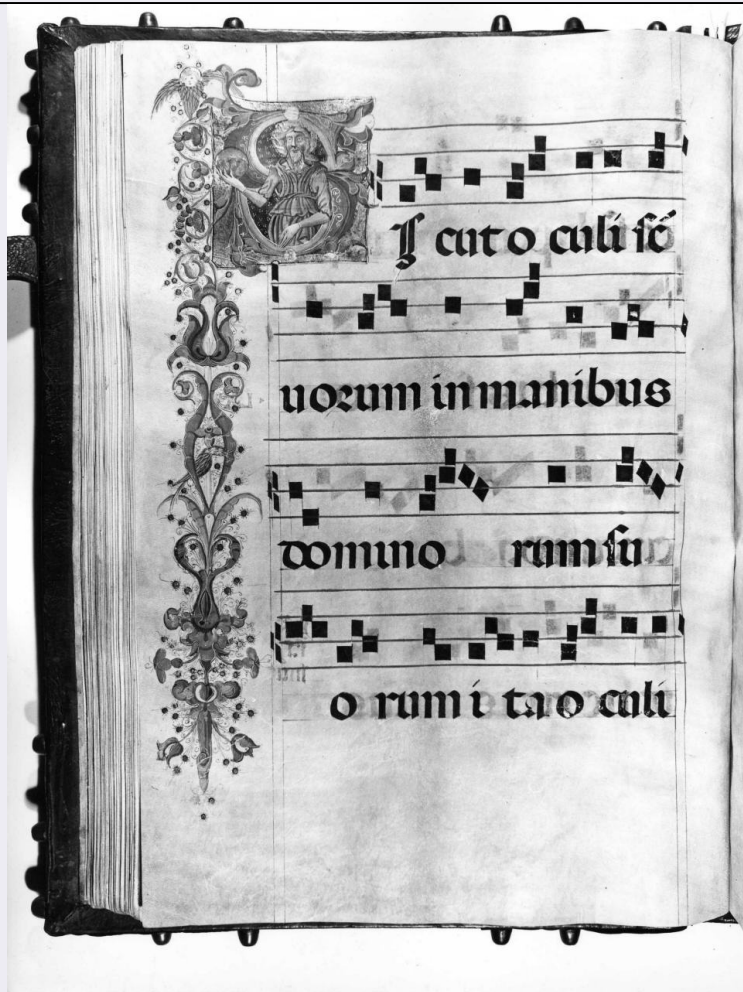 SI cut o culi ſc̄
uorum in manibus
domino rum ſu
o rum i ta o culi